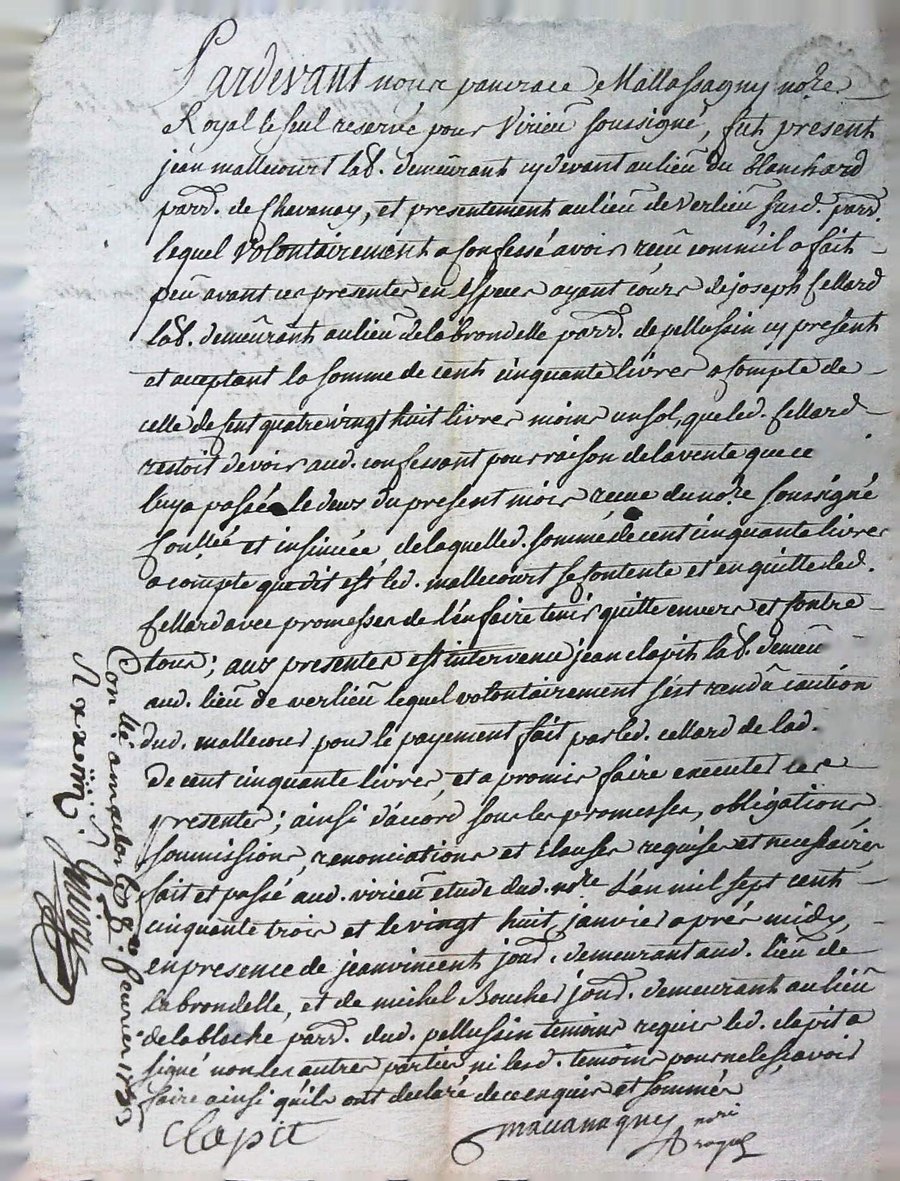 Pardevant nous pancrace de Mallassagny no.re
Royal le seul reservé pour Virieu soussigné, fut present
jean mallecourt lab. demeurant cy devant au lieu du blanchard
parr. de Chavanay, et presentement au lieu de verlieu susd. parr.
lequel volontairement a confessé avoir receu comm'il a fait
peu avant ces presentes en especes ayant cours de joseph Cellard
lab. demeurant au lieu de la brondelle parr. de pellussin cy present
et aceptant la somme de cent cinquante livres a compte de
celle de cent quatre vingt huit livres moins un sol, que led. Cellard
restoit devoir aud. confessant pour raison de la vente que ce
luy a passée le deux du present mois receue du no.re soussigné
Conllée et insinuée de laquelle d. somme de cent cinquante livres
a compte que dit est led. mallecourt se contente et en quitte led.
Cellard avec promesses de l'en faire tenir quitte envers et contre
tous; aux presentes est intervenu jean clapit lab. demeu
aud. lieu de verlieu lequel volontairement s'est rendu caution
dud. mallecour pour le payement fait par led. cellard de lad.
de cent cinquante livres, et a promis faire executer ces
presentes; ainsi d'accord sous les promesses, obligations
soumissions, renonciations et clauses requises et necessaires
fait et passé aud. virieu etude dud. no.re L'an mil sept cent
cinquante trois et le vingt huit janvier aprés midy,
en presence de jean vincent jour. demeurant aud. lieu de
la brondelle, et de michel Boucher jour. demeurant au lieu
de la bloche parr. dud. pellussin temoins requis led. clapit a
signé non les autres parties ni lesd. temoins pour ne le sçavoir
faire ainsi qu'ils ont declaré de ce enquis et sommés
Clapit
no.re
Con.llé a
le 8.e feurier 1753